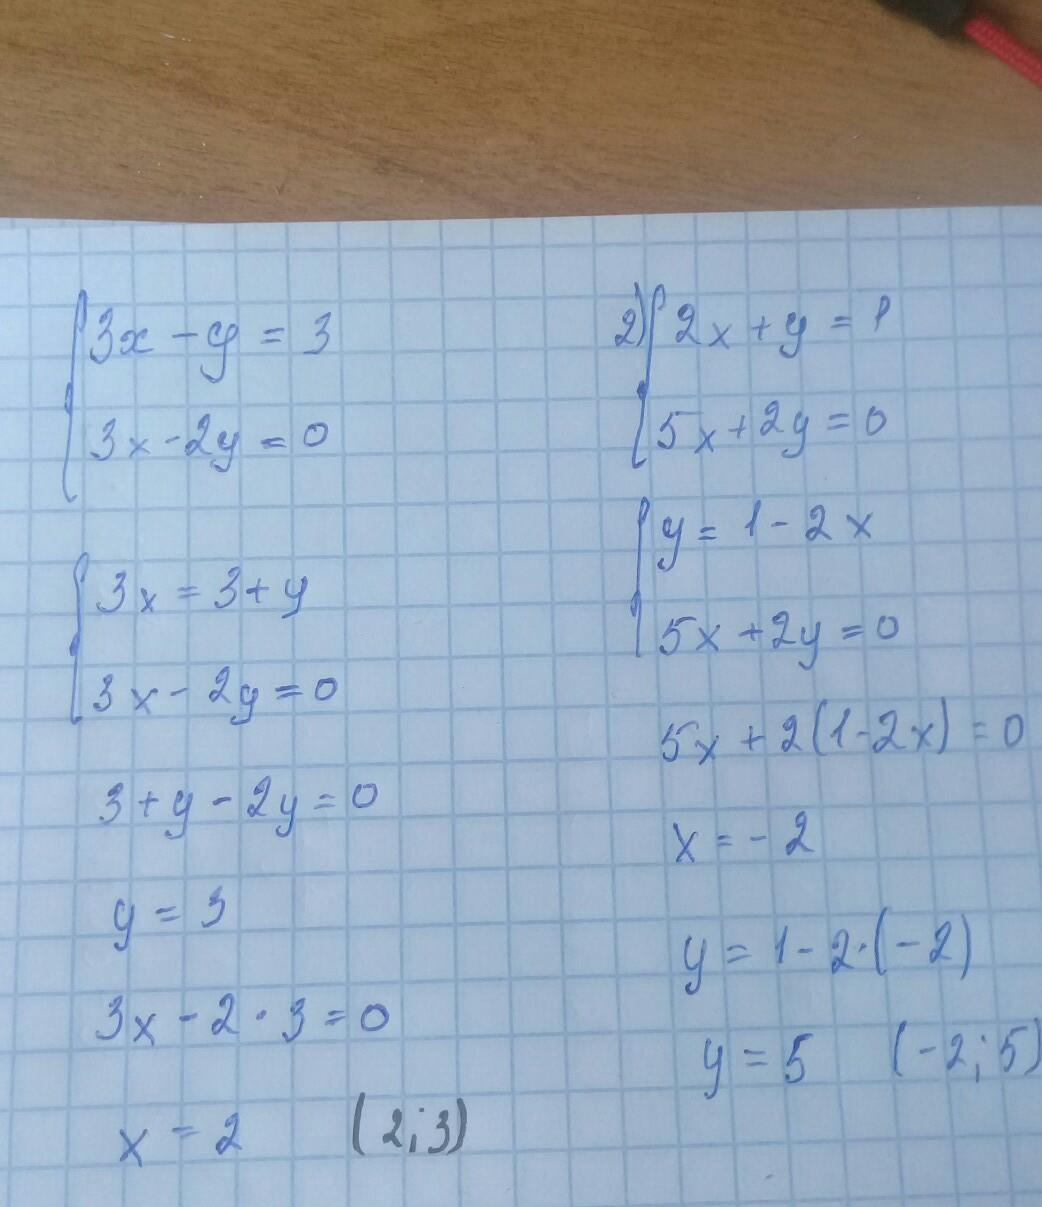 3x - y = 3
3x - 2y = 0
3x = 3 + y
3x - 2y = 0
3 + y - 2y = 0
y = 3
3x - 2 · 3 = 0
x = 2 (2; 3)
2) 2x + y = 1
5x + 2y = 0
y = 1 - 2x
5x + 2y = 0
5x + 2(1 - 2x) = 0
x = - 2
y = 1 - 2 · (- 2)
y = 5 (-2; 5)